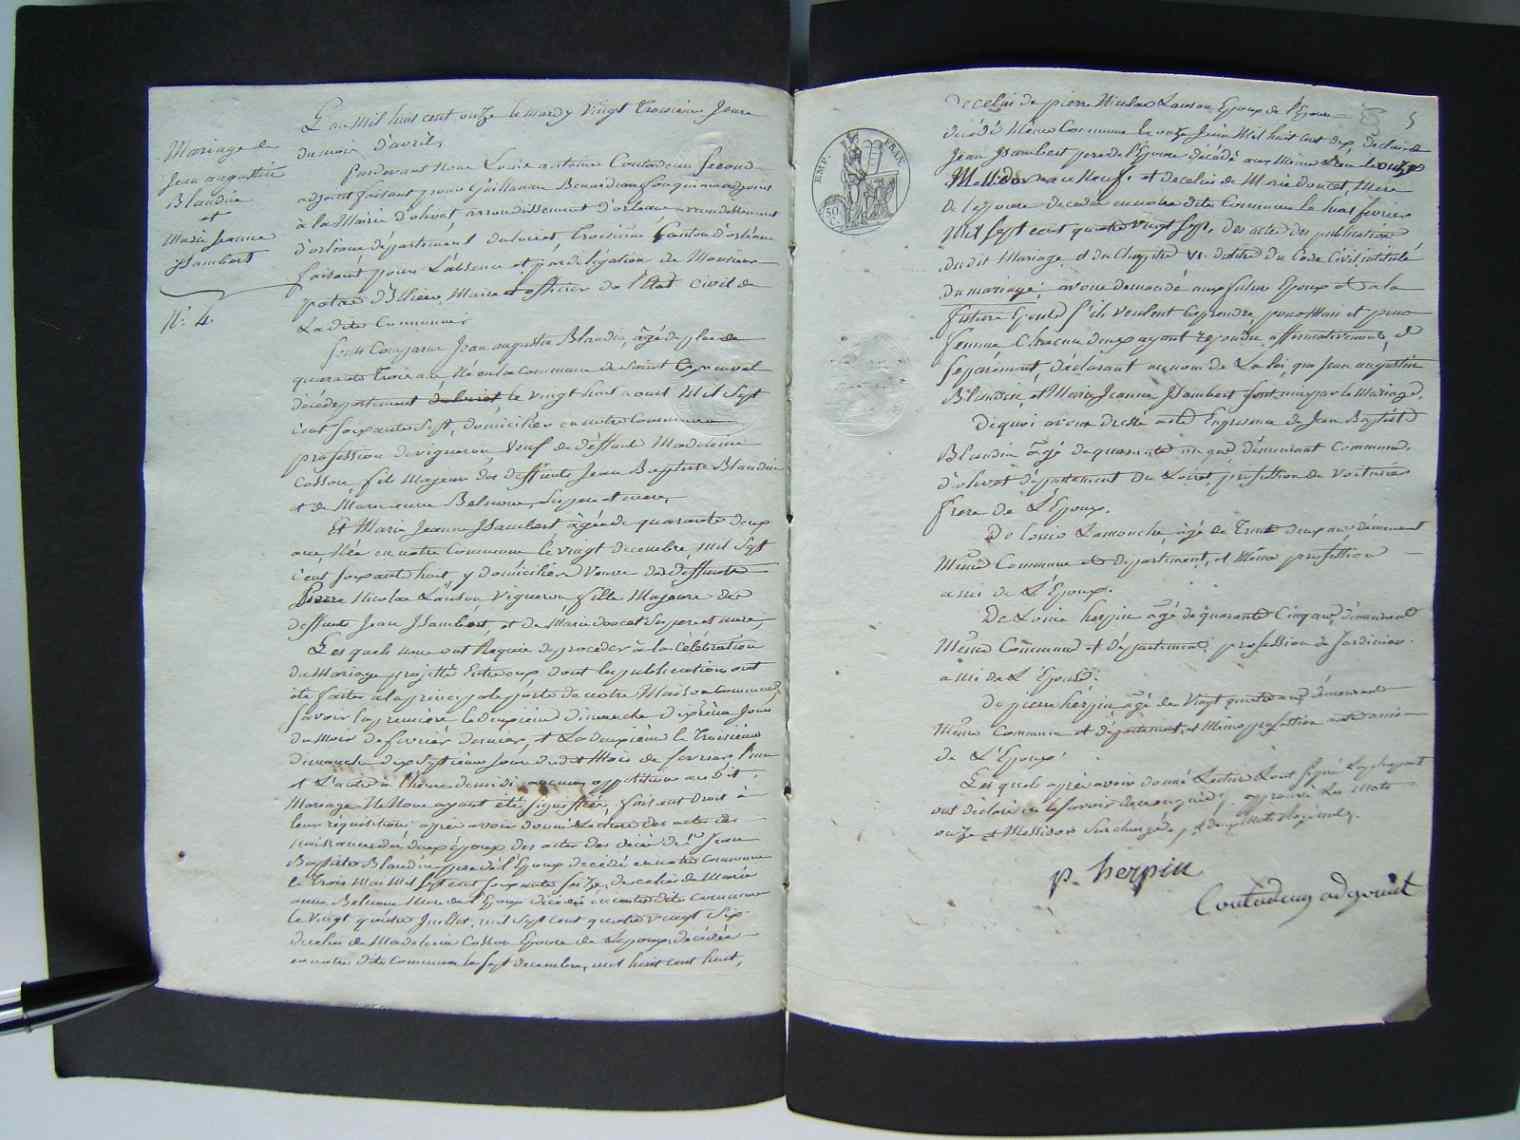 Mariage de
Jean augustin
Blandin
et
Marie Jeanne
Isambert
N.º 4.
L'an Mil huit cent onze le mardy Vingt Troisieme Jour
du mois d'avril,
Pardevant Nous Louis antoine Coutadeur second
adjoint faisant pour Guillaume adjoint
à la Mairie d'olivet, arrondissement d'orleans
d'orleans département du loiret, Troisieme Canton d'orleans
faisant pour L'absence et par délégation de Monsieur
Maire et officier de l'Etat civil de
La dite Commune;
Sont Comparus Jean augustin Blandin, âgé de plus de
quarante Trois ans, Né en la Commune de Saint
département du loiret, le vingt huit aout Mil Sept
cent soixante Sept, domicilier en notre Commune
profession de vigneron, Veuf de déffunte Madeleine
Cosson, fils Majeur des deffunts Jean Baptiste Blandin
et de Marie anne Belouine, ses pere et mere,
Et Marie Jeanne Isambert âgée de quarante deux
ans Née en notre Commune le vingt decembre, mil Sept
cent soixante huit, y domiciliée Veuve de deffunt
Pierre Nicolas Lanson, Vigneron, fille Majeure de
deffunt Jean Isambert, et de Marie doucet ses pere et mere,
Lesquels nous ont Requis de procéder à la Célébration
du Mariage projetté Entre eux dont les publications ont
été faites à la principale porte de notre Maison Commune,
Savoir la premiere le deuxieme dimanche dixieme Jour
du Mois de fevrier dernier, et La deuxieme le Troisieme
dimanche dix Septieme Jour dudit Mois de fevrier, l'une
et L'autre à l'heure de midi aucune opposition audit
Mariage Ne Nous ayant été signiffiée, faisant Droit à
leur réquisition, après avoir donné Lecture des actes de
naissances des deux Epoux des actes des décès de Jean
Baptiste Blandin pere de l'Epoux decédé en notre Commune
le Trois Mai Mil Sept cent soixante Seize, de celui de Marie
anne Belouine Mere de l'Epoux décédée en notre dite Commune
le Vingt quatre Juillet, mil Sept cent quatre vingt Six
de celui de Madeleine Cosson Epouse de L'epoux, decédée
en notre dite Commune le Sept decembre, mil huit cent huit,
5
EMP. FRAN.
50 C.
de celui de pierre Nicolas Lanson Epoux de l'Epouse
decédé Même Commune le onze Juin Mil huit cent dix, de celui de
Jean Isambert pere de l'Epouse décédé au Même Lieu le onze
Messidor an Neuf, et de celui de Marie doucet, Mere
de l'epouse decédée en notre dite Commune le huit fevrier
Mil Sept cent quatre vingt Sept, des actes des publications
dudit Mariage, et du Chapitre VI. du titre du Code Civil intitulé
du mariage; avons demandé aux futurs Epoux et à la
future Epouse S'ils veulent Se prendre pour Mari et pour
femme Chacun d'eux ayant répondu affirmativement, et
Separément, déclarant au nom de La loi, que Jean augustin
Blandin, et Marie Jeanne Isambert Sont unis par le Mariage.
De quoi avons dressé acte En presence de Jean Baptiste
Blandin âgé de quarante un ans, demeurant Commune
d'olivet département du Loiret, profession de Voiturier
frere de L'Epoux.
De Louis Lamouche âgé de Trente deux ans demeurant
Même Commune et departement, et Même profession
ami de L'Epoux.
De Louis herpin âgé de quarante Cinq ans, demeurant
Même Commune et département, profession de Jardinier
ami de L'Epouse.
De pierre herpin âgé de Vingt quatre ans demeurant
Même Commune et département, et Même profession autre ami
de L'Epoux.
Lesquels après avoir donné Lecture L'ont Signé
ont déclaré ne le savoir de ce enquis, approuvé Les mots
onze et Messidor Surchargés, et deux Mots Rayés nuls.
p. herpin
Coutadeur adjoint